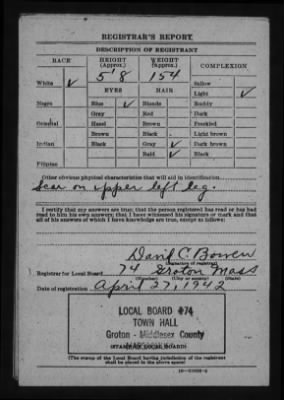 REGISTRAR'S REPORT
DESCRIPTION OF REGISTRANT
RACE HEIGHT (Approx.) WEIGHT (Approx.) COMPLEXION
5'8 154
White ✓ Sallow
EYES HAIR Light ✓
Negro Blue ✓ Blonde Ruddy
Gray Red Dark
Oriental Hazel Brown Freckled
Brown Black Light brown
Indian Black Gray ✓ Dark brown
Bald ✓ Black
Filipino
Other obvious physical characteristics that will aid in identification
Scar on upper left leg.
I certify that my answers are true; that the person registered has read or has had
read to him his own answers; that I have witnessed his signature or mark and that
all of his answers of which I have knowledge are true, except as follows:
David C. Bowen
(Signature of registrar)
Registrar for Local Board 74 Groton Mass
(Number) (City or county) (State)
Date of registration April 27, 1942
LOCAL BOARD #74
TOWN HALL
Groton - Middlesex County
(STAMP OF LOCAL BOARD)
(The stamp of the Local Board having jurisdiction of the registrant
shall be placed in the above space)